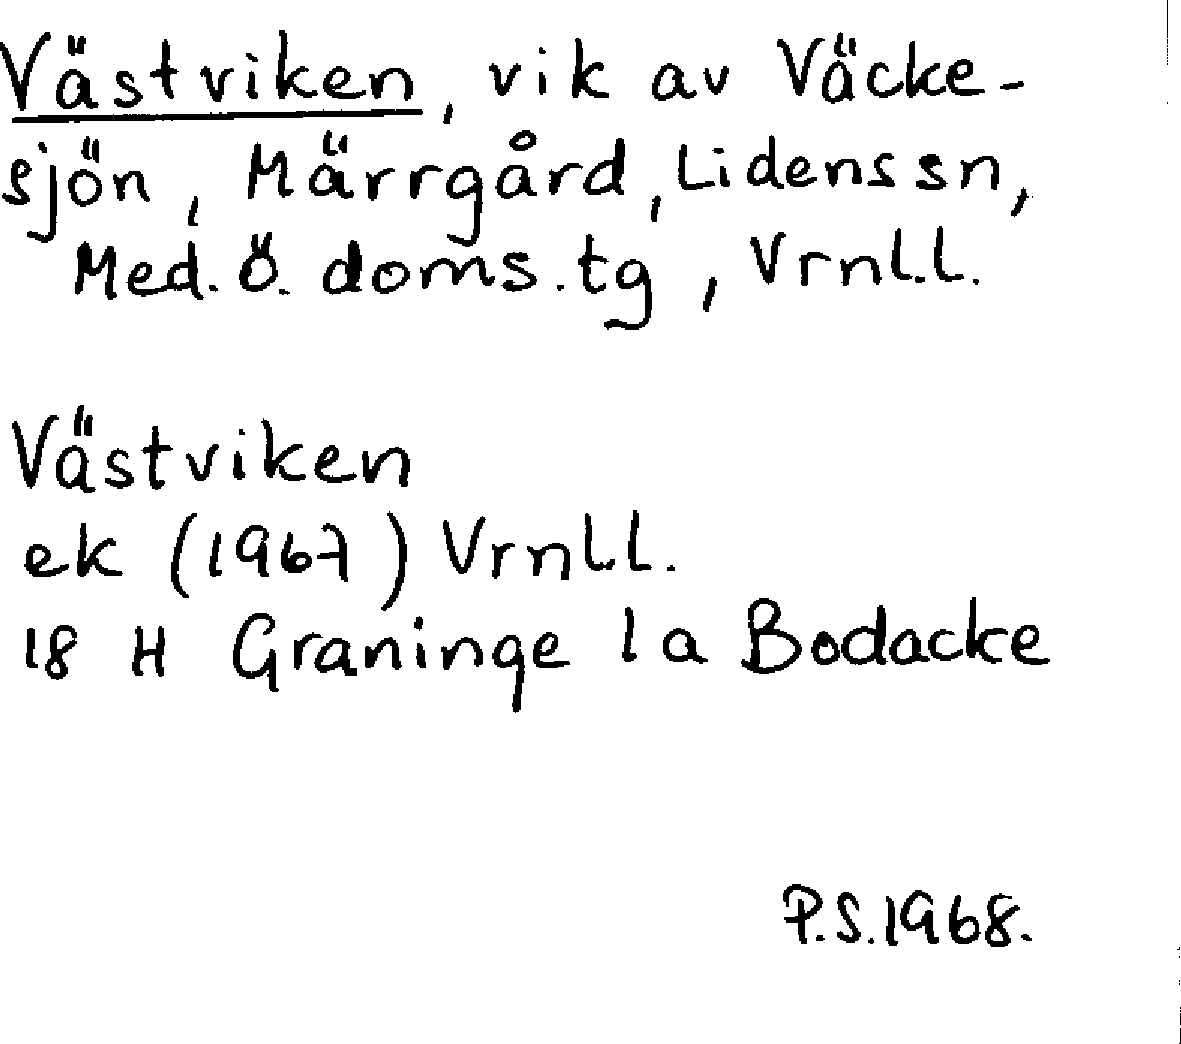 Västviken, vik av Väcke-
sjön, Märrgård, Lidens sn,
Med. Ö. doms.tg, Vrnl.l.
Västviken
ek (1967) Vrnl.l.
18 H Graninge 1a Bodacke
P.S.1968.